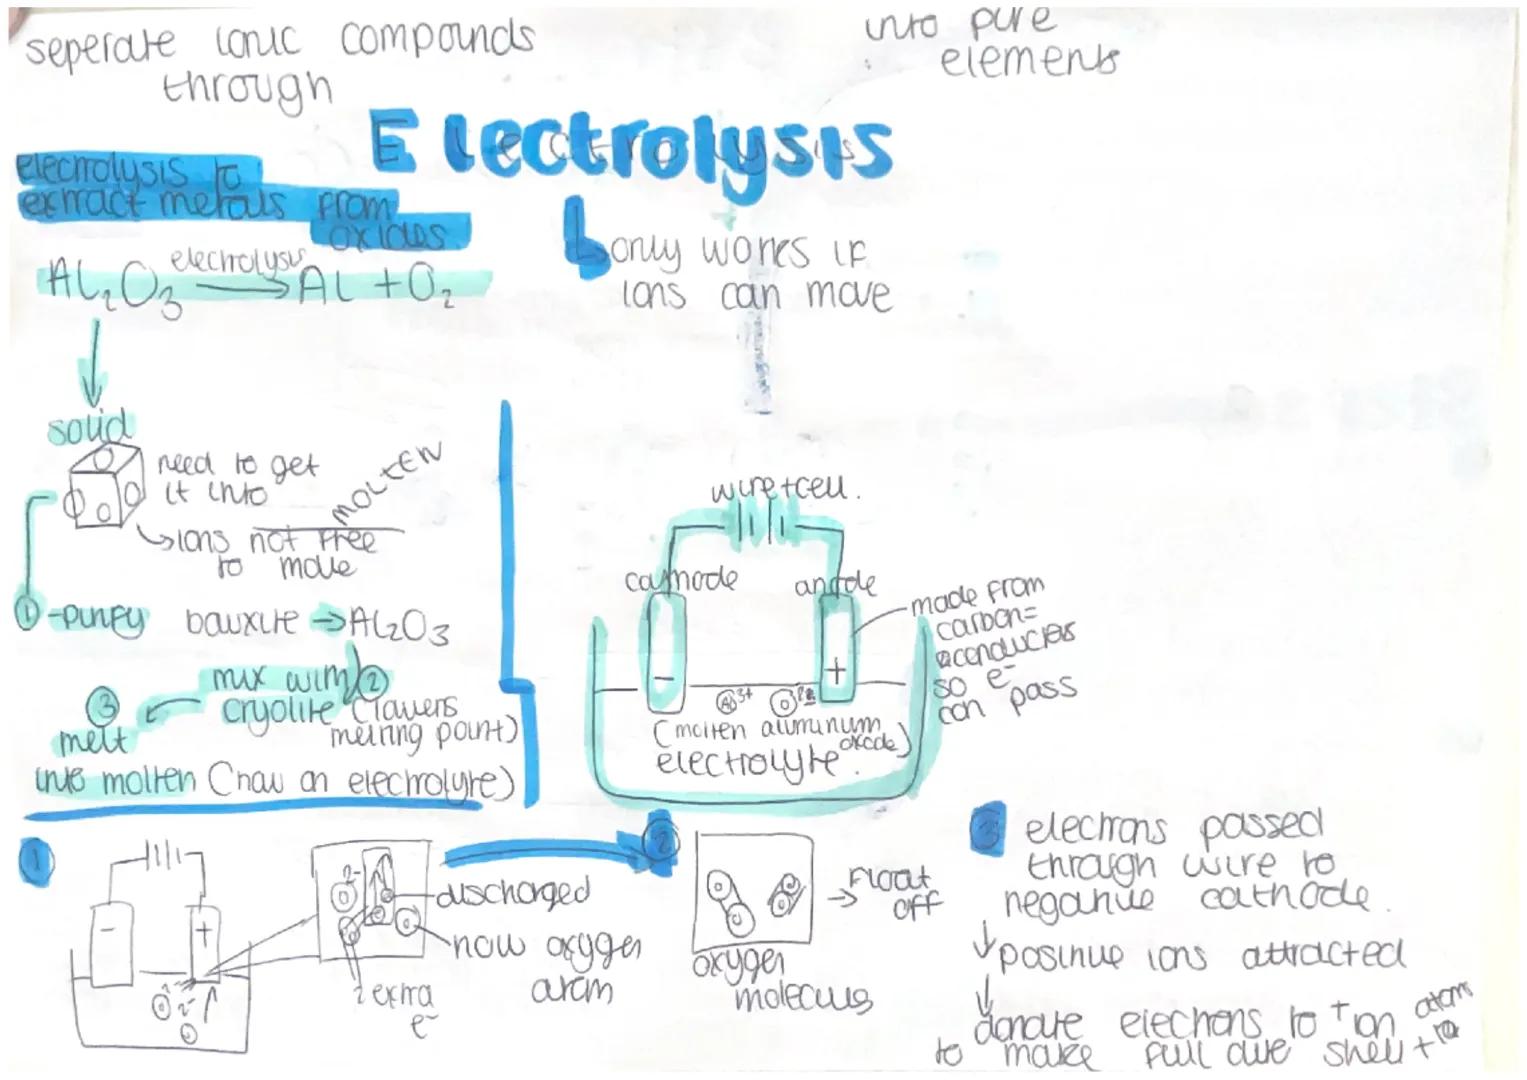 seperate ionic compounds
through
into pure
elements
Electrolysis
elecrolysis to
extract metals from
oxides
Al₂O₃ electrolysis → Al + O₂
↳ only works if
ions can move
solid
need to get
it into MOLTEN
↳ ions not free
to move
① -purify bauxite → Al₂O₃
② mix with
cryolite (lowers
melting point)
③
melt
into molten (now an electrolyte)
wire + cell.
cathode
anode
-
+
made from
carbon =
conducters
so e⁻
can pass
Al³⁺ O²⁻
(molten aluminum
oxide)
electrolyte.
①
-
+
2-
2-
discharged
now oxygen
atom
2 extra
e⁻
②
→ Float
off
oxygen
molecules
③ electrons passed
through wire to
negative cathode.
↓ positive ions attracted
↓
donate electrons to + ion
to make full outer shell +